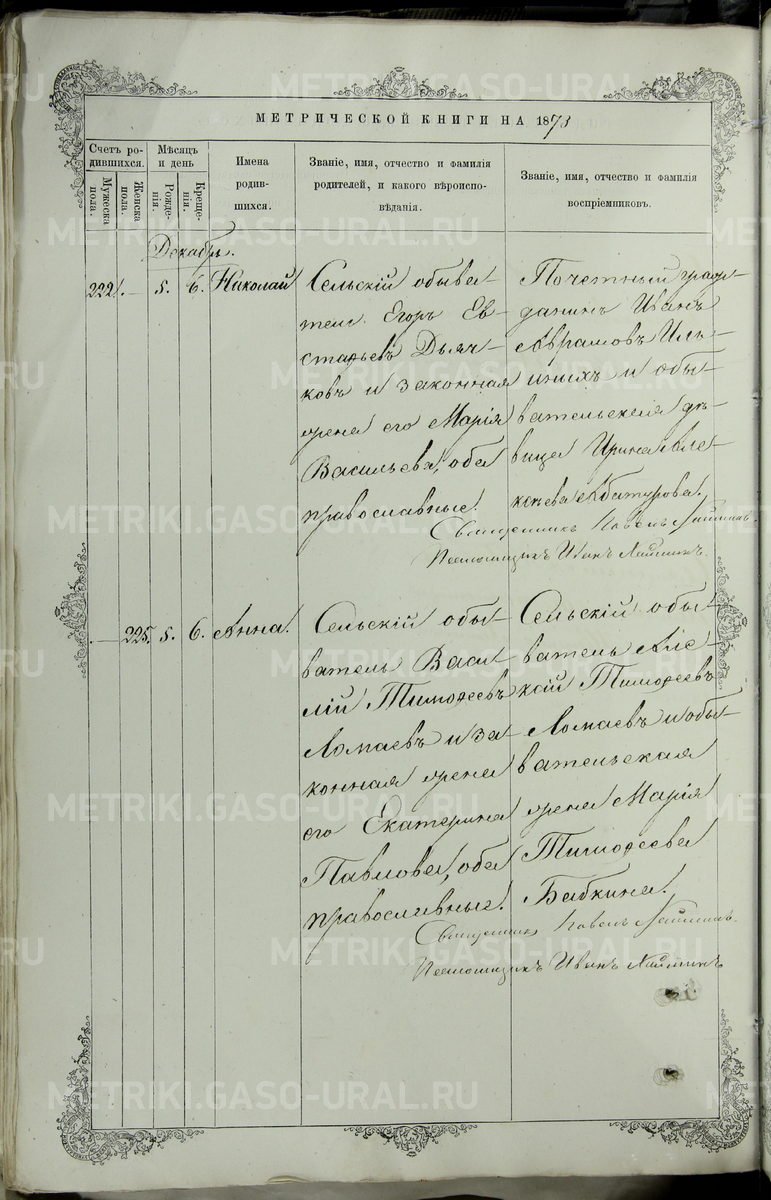 МЕТРИЧЕСКОЙ КНИГИ НА 1873
Счетъ родившихся.
Мѣсяцъ и день
Мужеска пола.
Женска пола.
Рожденія.
Крещенія.
Имена родившихся.
Званіе, имя, отчество и фамилія родителей, и какого вѣроисповѣданія.
Званіе, имя, отчество и фамилія воспріемниковъ.
Декабрь.
222. — 5. 6. Николай
Сельскій обыва-
тель Егоръ Ев-
стафьевъ Дьяч-
ковъ и законная
жена его Марія
Васильева, оба
православные.
Почетный граж-
данинъ Иванъ
Аврамовъ Иль-
иныхъ и обы-
вательская дѣ-
вица Ирина Але-
ксѣева Абатурова.
Священникъ
Иванъ
— 225. 5. 6. Анна.
Сельскій обы-
ватель Васи-
лій Тимофеевъ
Ломаевъ и за-
конная жена
его Екатерина
Павлова, оба
православные.
Сельскій обы-
ватель Але-
ксій Тимофеевъ
Ломаевъ и обы-
вательская
жена Марія
Тимофеева
Бабкина.
Священникъ
Иванъ
METRIKI.GASO-URAL.RU